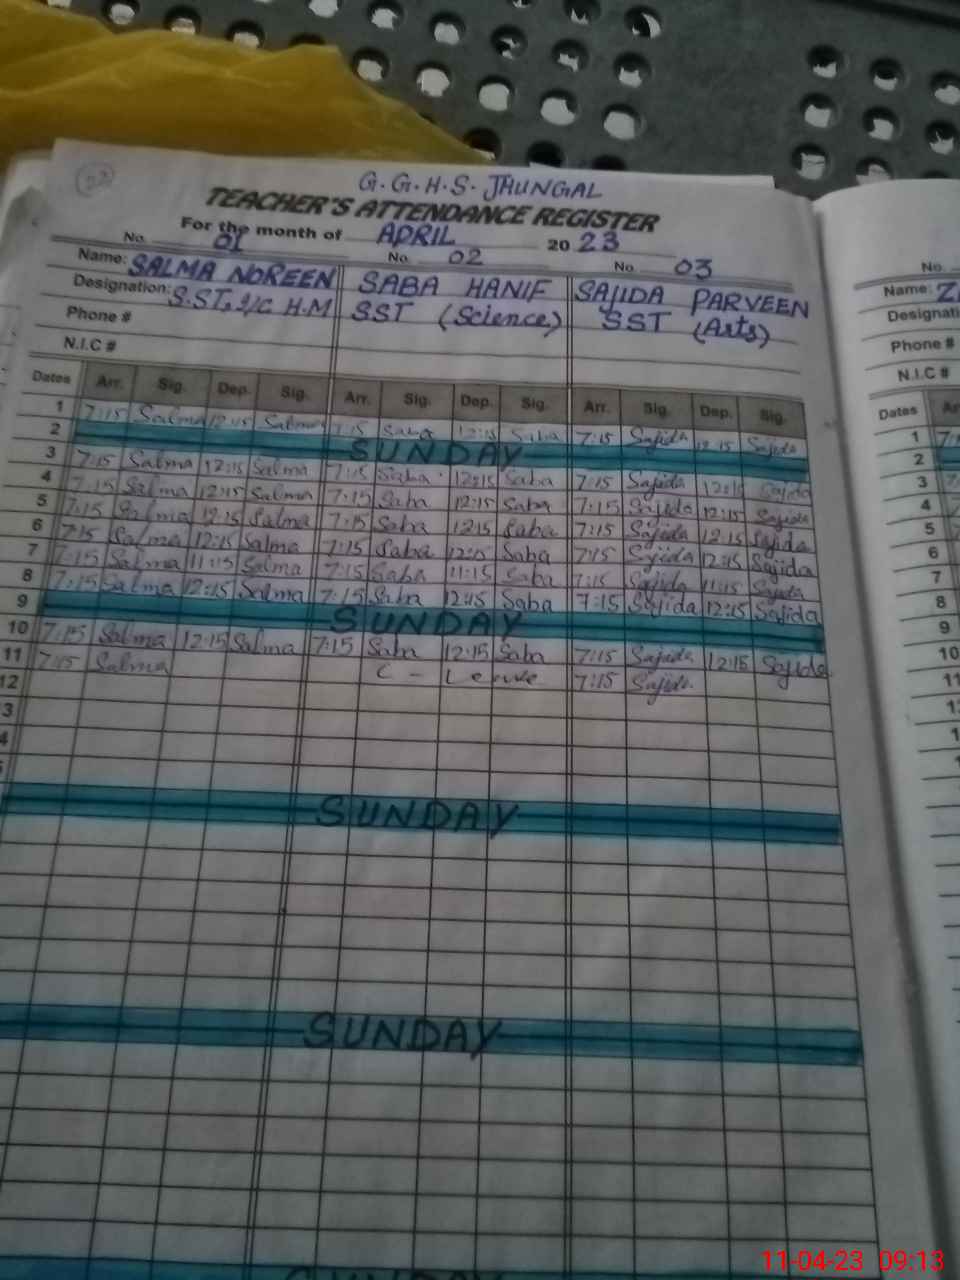 G.G.H.S. JHUNGAL
TEACHER'S ATTENDANCE REGISTER
For the month of APRIL 2023
No. 01 No. 02 No. 03 No.
Name: SALMA NOREEN SABA HANIF SAJIDA PARVEEN Name: Z
Designation: S.ST, I/C H.M SST (Science) SST (Arts) Designati
Phone # Phone #
N.I.C # N.I.C #
Dates Arr. Sig. Dep. Sig. Arr. Sig. Dep. Sig. Arr. Sig. Dep. Sig. Dates Ar
1 7:15 Salma 12:15 Salma 7:15 Saba 12:15 Saba 7:15 Sajida 12:15 Sajida 1
2 SUNDAY 2
3 7:15 Salma 12:15 Salma 7:15 Saba 12:15 Saba 7:15 Sajida 12:15 Sajida 3
4 7:15 Salma 12:15 Salma 7:15 Saba 12:15 Saba 7:15 Sajida 12:15 Sajida 4
5 7:15 Salma 12:15 Salma 7:15 Saba 12:15 Saba 7:15 Sajida 12:15 Sajida 5
6 7:15 Salma 12:15 Salma 7:15 Saba 12:15 Saba 7:15 Sajida 12:15 Sajida 6
7 7:15 Salma 11:15 Salma 7:15 Saba 11:15 Saba 7:15 Sajida 11:15 Sajida 7
8 7:15 Salma 12:15 Salma 7:15 Saba 12:15 Saba 7:15 Sajida 12:15 Sajida 8
9 SUNDAY 9
10 7:15 Salma 12:15 Salma 7:15 Saba 12:15 Saba 7:15 Sajida 12:15 Sajida 10
11 7:15 Salma C - Leave 7:15 Sajida 11
12
3
4
SUNDAY
SUNDAY
SUNDAY
11-04-23 09:13